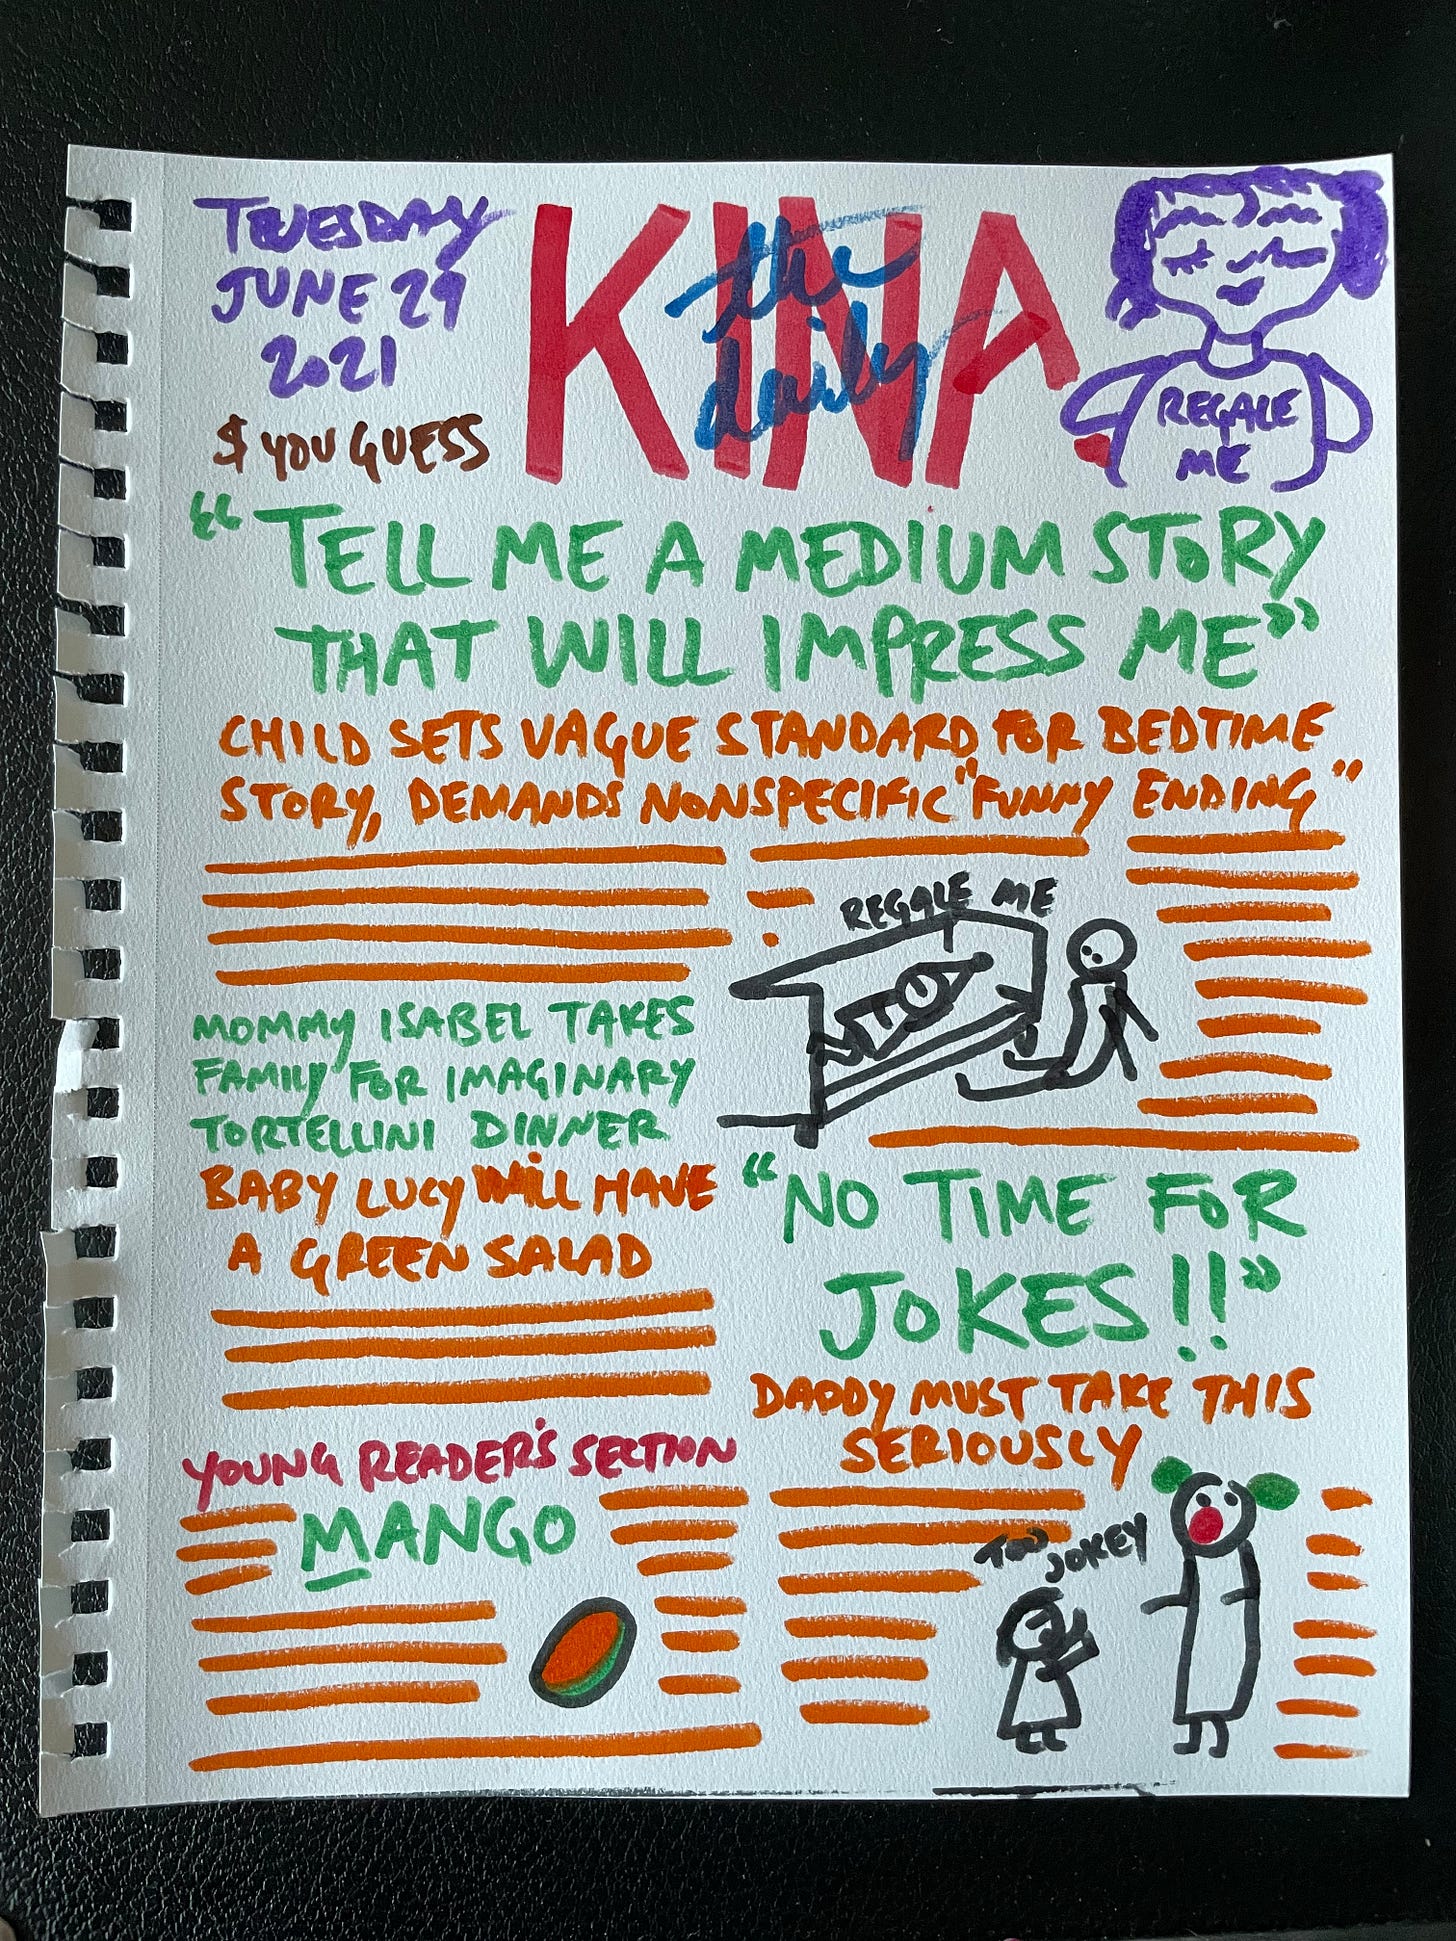 TUESDAY
JUNE 29
2021
$ YOU GUESS
KINA
the
daily
REGALE
ME
"TELL ME A MEDIUM STORY
THAT WILL IMPRESS ME"
CHILD SETS VAGUE STANDARD FOR BEDTIME
STORY, DEMANDS NONSPECIFIC "FUNNY ENDING"
REGALE ME
MOMMY ISABEL TAKES
FAMILY FOR IMAGINARY
TORTELLINI DINNER
BABY LUCY WILL HAVE
A GREEN SALAD
"NO TIME FOR
JOKES!!"
DADDY MUST TAKE THIS
SERIOUSLY
TOO
JOKEY
YOUNG READER'S SECTION
MANGO